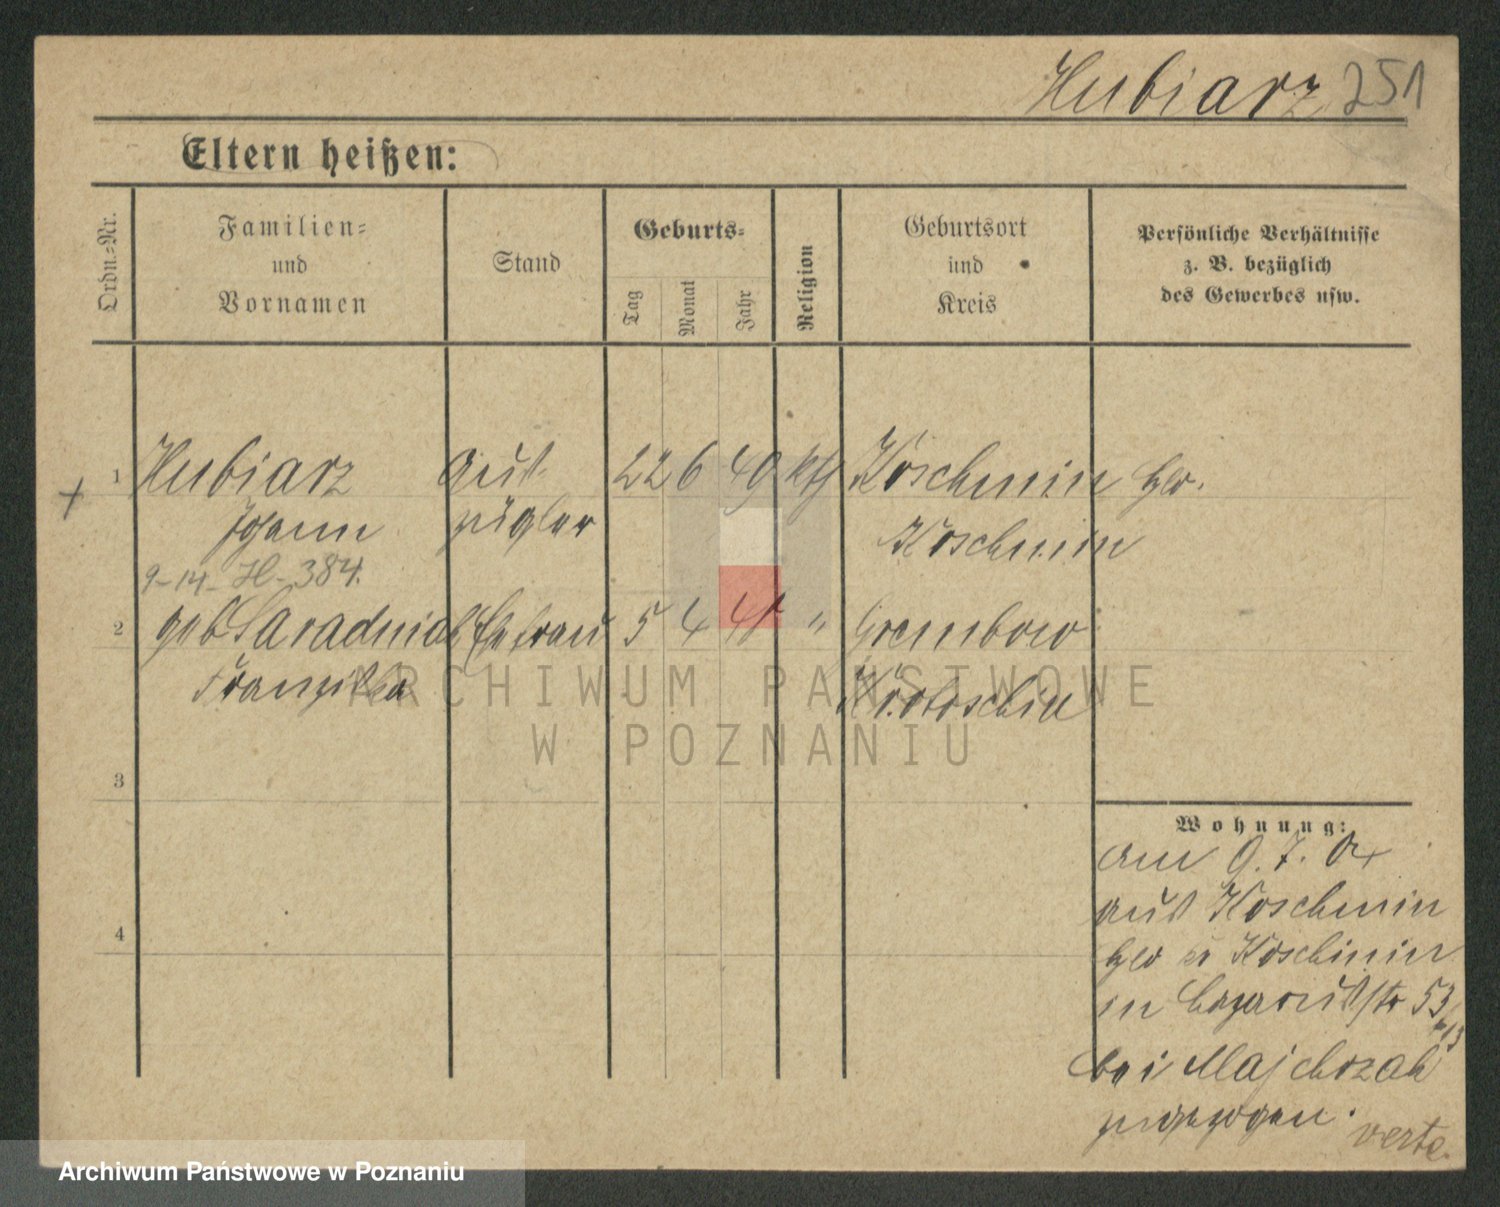 Hubiarz 251
Eltern heißen:
Ordn.-Nr.
Familien-
und
Vornamen
Stand
Geburts-
Tag
Monat
Jahr
Religion
Geburtsort
und
Kreis
Persönliche Verhältnisse
z. B. bezüglich
des Gewerbes usw.
1 Hubiarz 22 6 49 kth Koschmin
Johann Koschmin
9-14- H- 384.
2 geb Ehefrau 5 4 " Grembow
Franziska Krotoschin
3
4
Wohnung:
am 9. 7.
aus Koschmin
Koschmin
in 53
bei Majchrzak
zugezogen.
verte.
ARCHIWUM PAŃSTWOWE
W POZNANIU
Archiwum Państwowe w Poznaniu